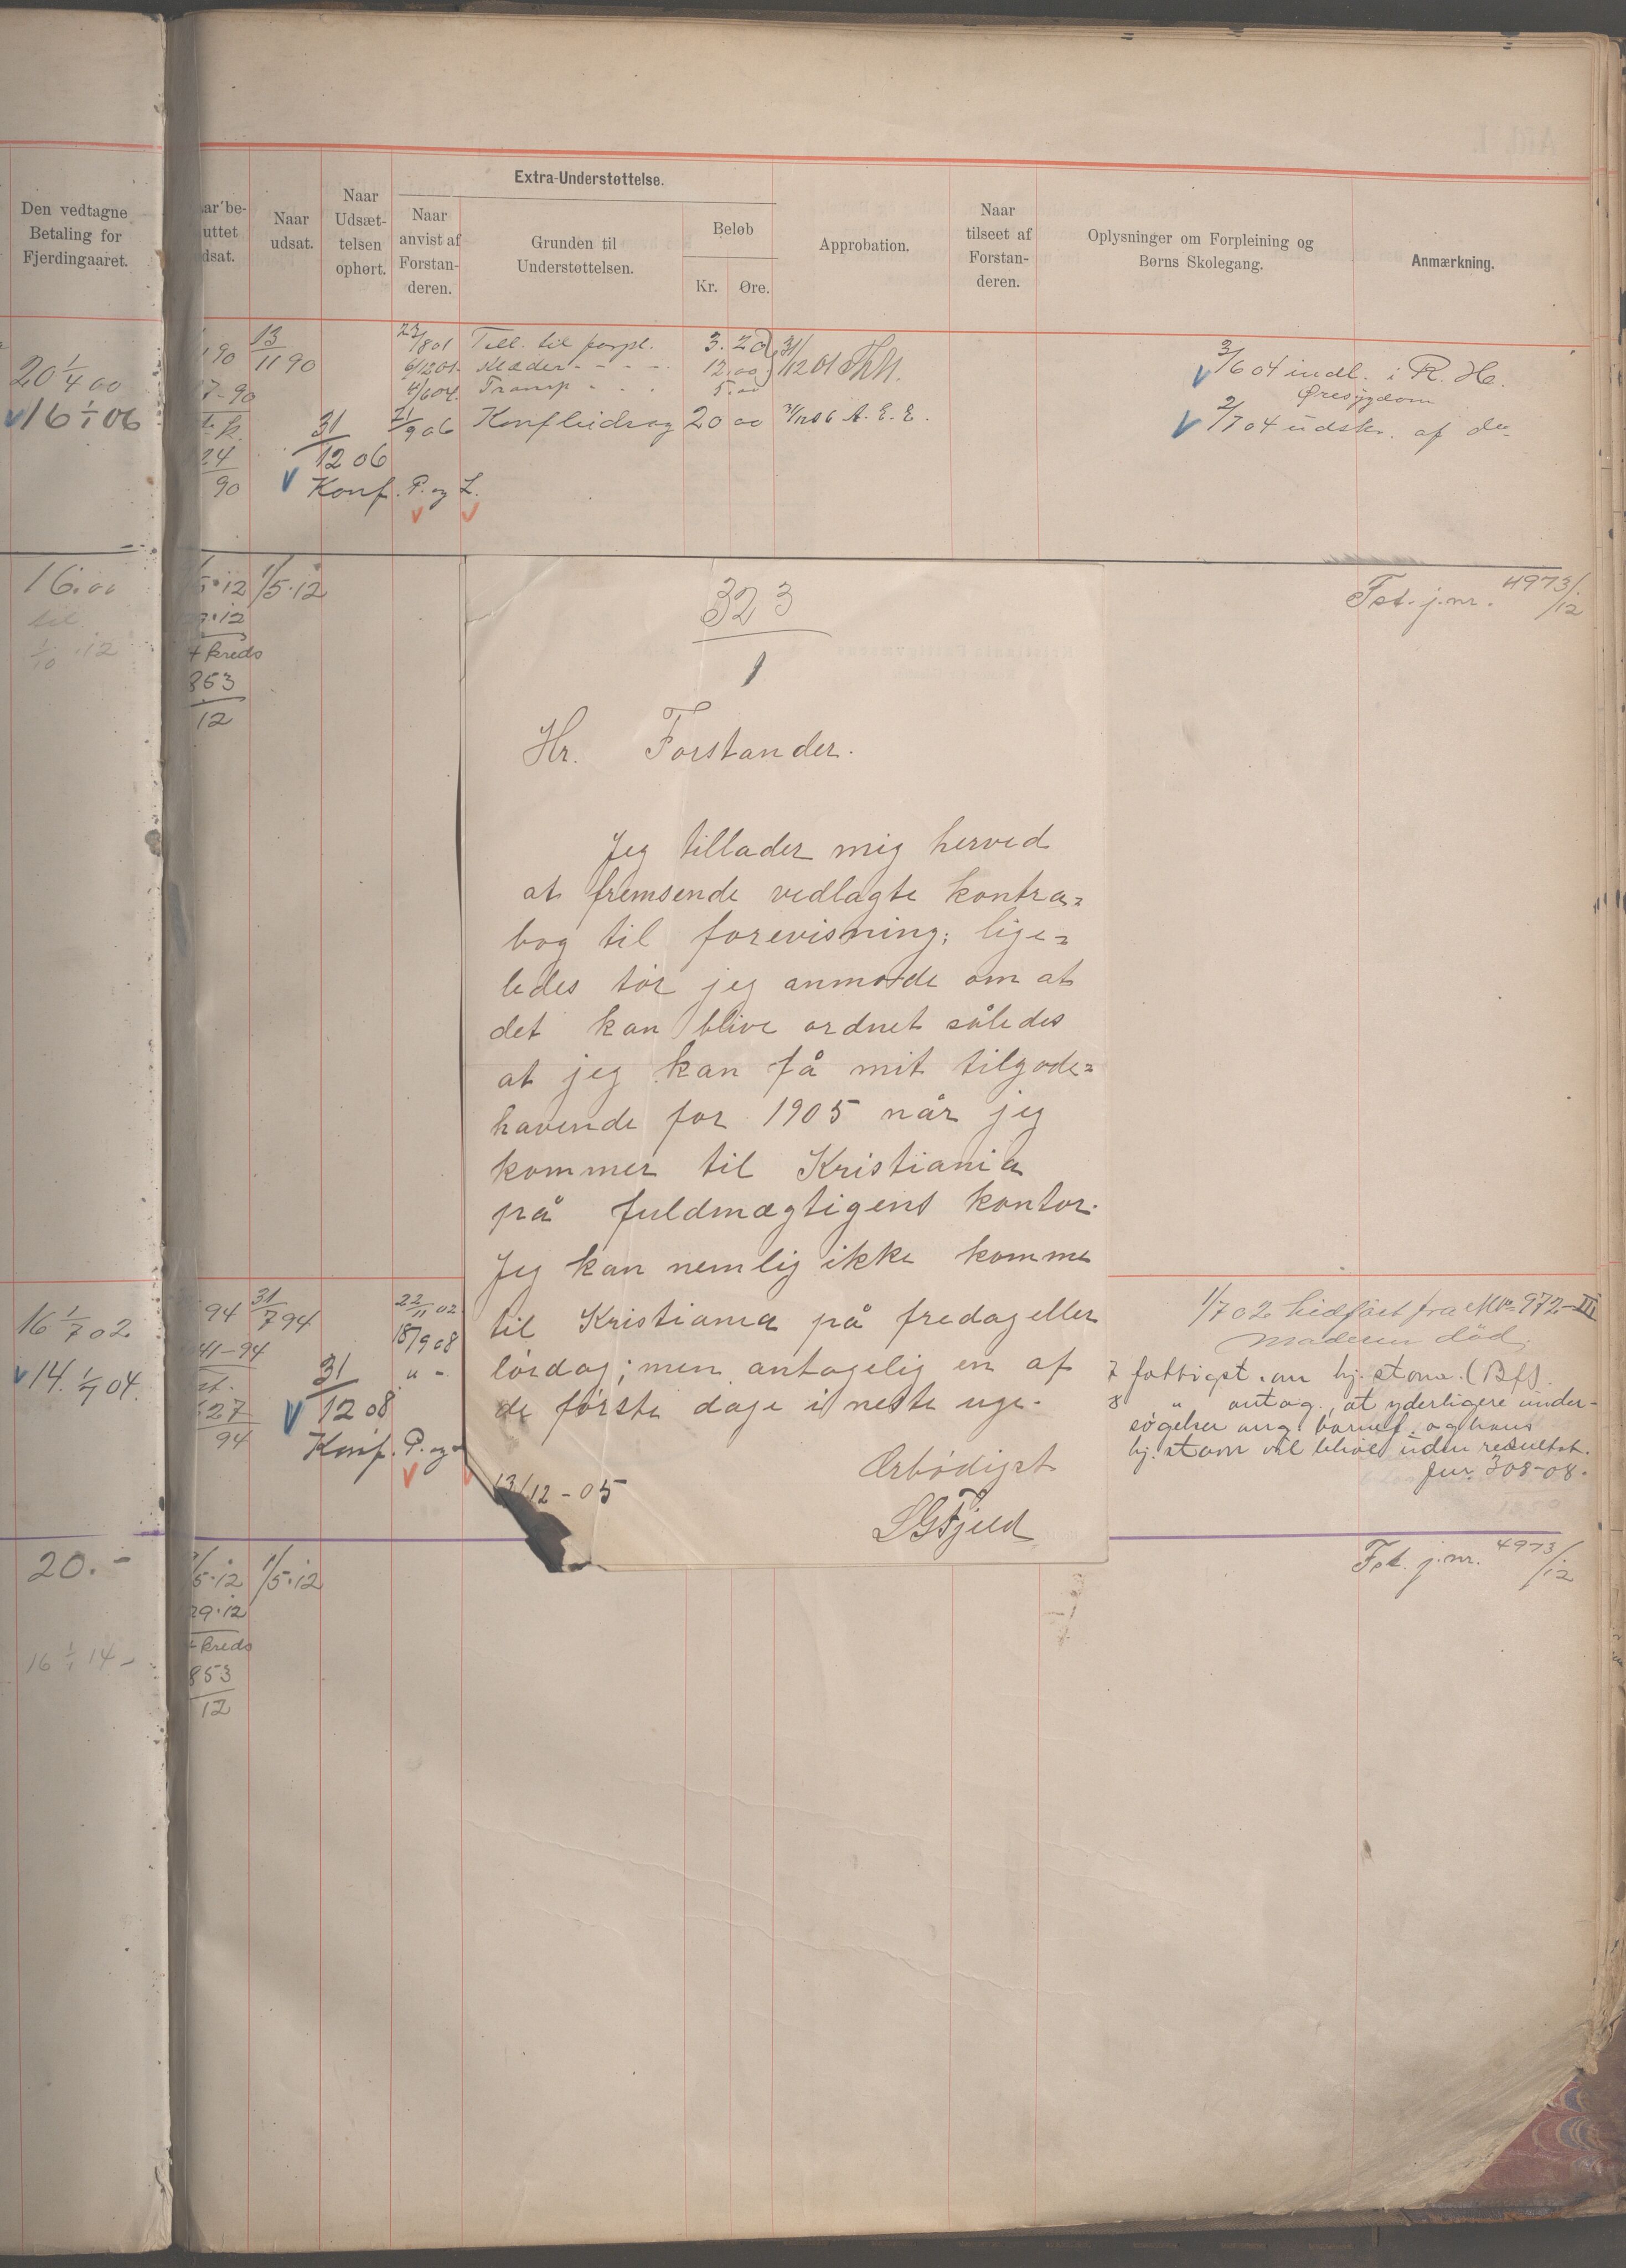 Den vedtagne
Betaling for
Fjerdingaaret.
20 1/4 00
16 1/1 06
16.00
til
1/10 .12
16 1/7 02
14. 1/7 04.
20.-
16 1/1 14-
uttet
dsat.
Naar
udsat.
Naar
Udsæt-
telsen
ophørt.
Extra-Understøttelse.
Naar
anvist af
Forstan-
deren.
Grunden til
Understøttelsen.
Beløb
Kr. Øre.
Approbation.
Naar
tilseet af
Forstan-
deren.
Oplysninger om Forpleining og
Børns Skolegang.
Anmærkning.
90 13/11 90
23/8 01 Till. til forpl. 3.20
6/12 01. Klæder - - - - 12.00 31/12 01
4/6 04. Tramp - - - 5.00
7-90
31/12 06
21/9 06 Konf.bidrag 20 00 31/12 06 A. E. E.
24/90
Konf. P. og L.
3/6 04 indl. i R. H.
Øresygdom
2/7 04 udskr. af do
5.12 1/5.12
Fst. j.nr. 4973/12
kreds
853
12
323
1
Hr. Forstander.
Jeg tillader mig herved
at fremsende vedlagte kontra=
bog til forevisning; lige=
ledes tør jeg anmode om at
det kan blive ordnet således
at jeg kan få mit tilgode=
havende for 1905 når jeg
kommer til Kristiania
på fuldmægtigens kontor.
Jeg kan nemlig ikke komme
til Kristiania på fredag eller
lørdag; men antagelig en af
de første dage i neste uge.
Ærbødigst
13/12-05
LGFjeld
94 31/7 94
22/11 02
18/9 08
" -
41-94
31/12 08
627
94
Konf. P. og
1/7 02 hidført fra No 972-III
moderen død.
fattigst. an hj. stavn. (Bfs).
" antag. at yderligere under-
søgelser ang. barnets og hans
hj. stavn vil blive uden resultat.
Jnr. 308-08.
5.12 1/5.12
Fst. j.nr. 4973/12
29.12
kreds
853
12